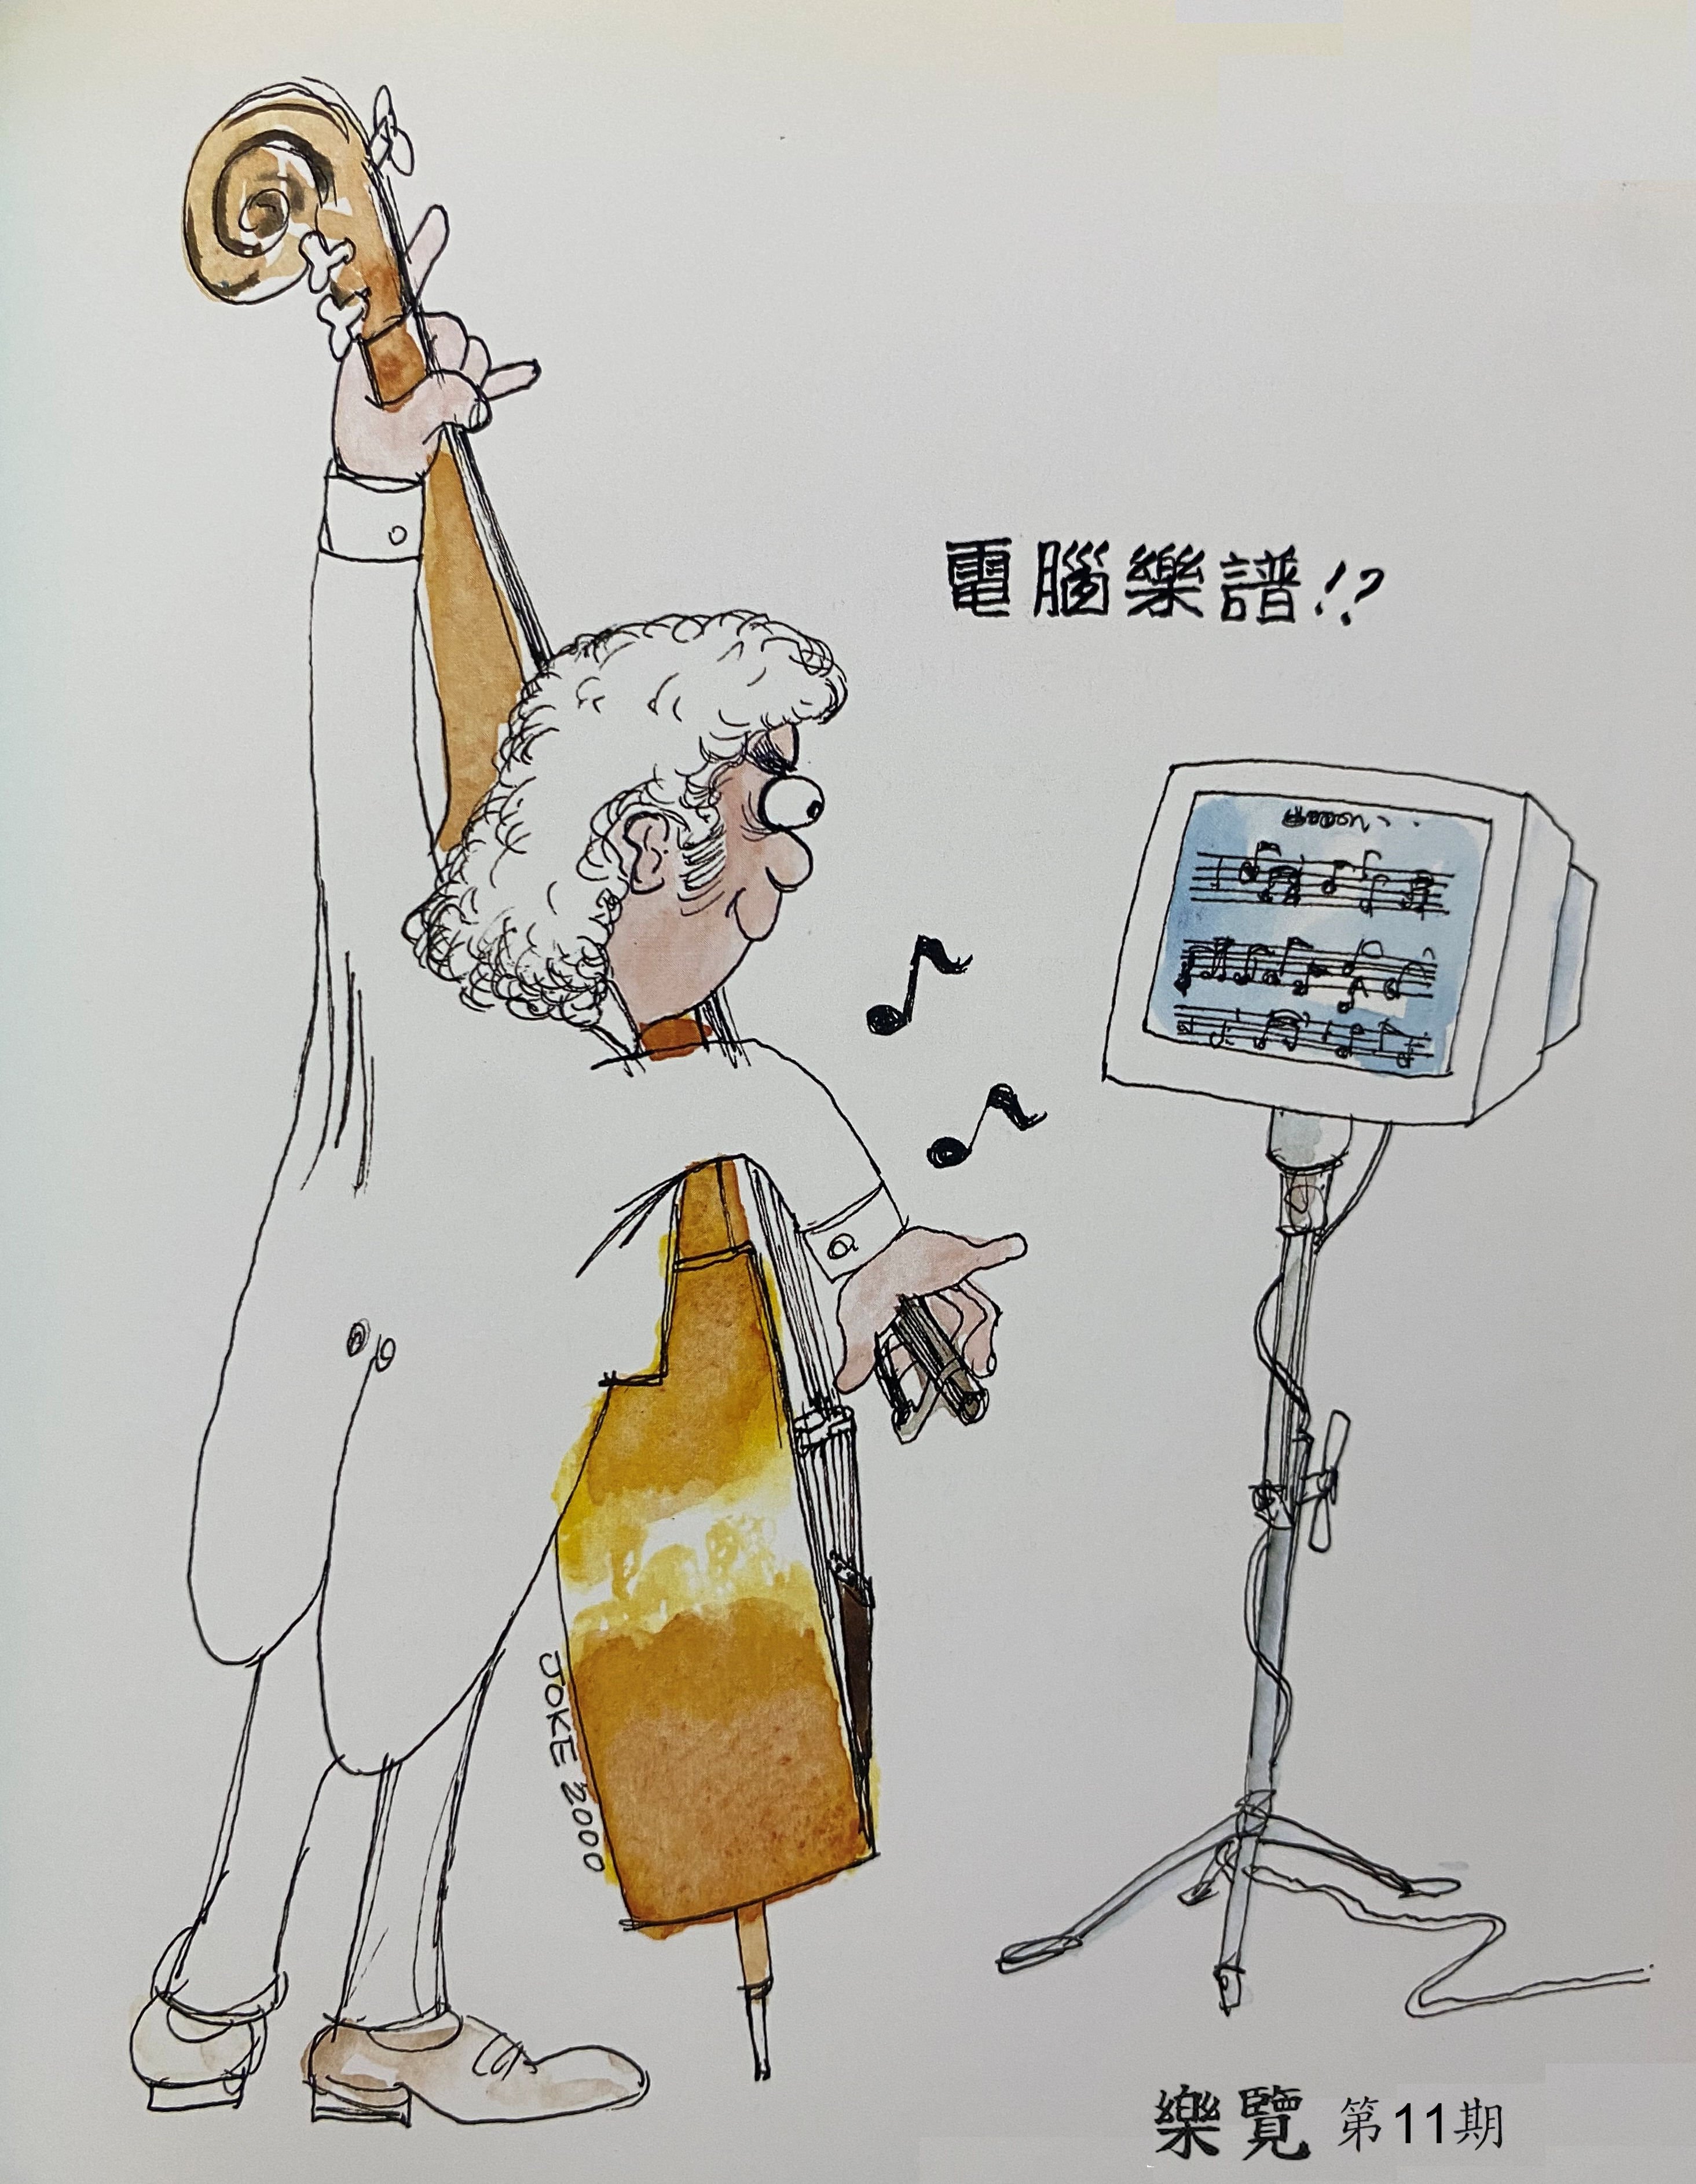 電腦樂譜!?
JOKE 2000
樂覽 第11期